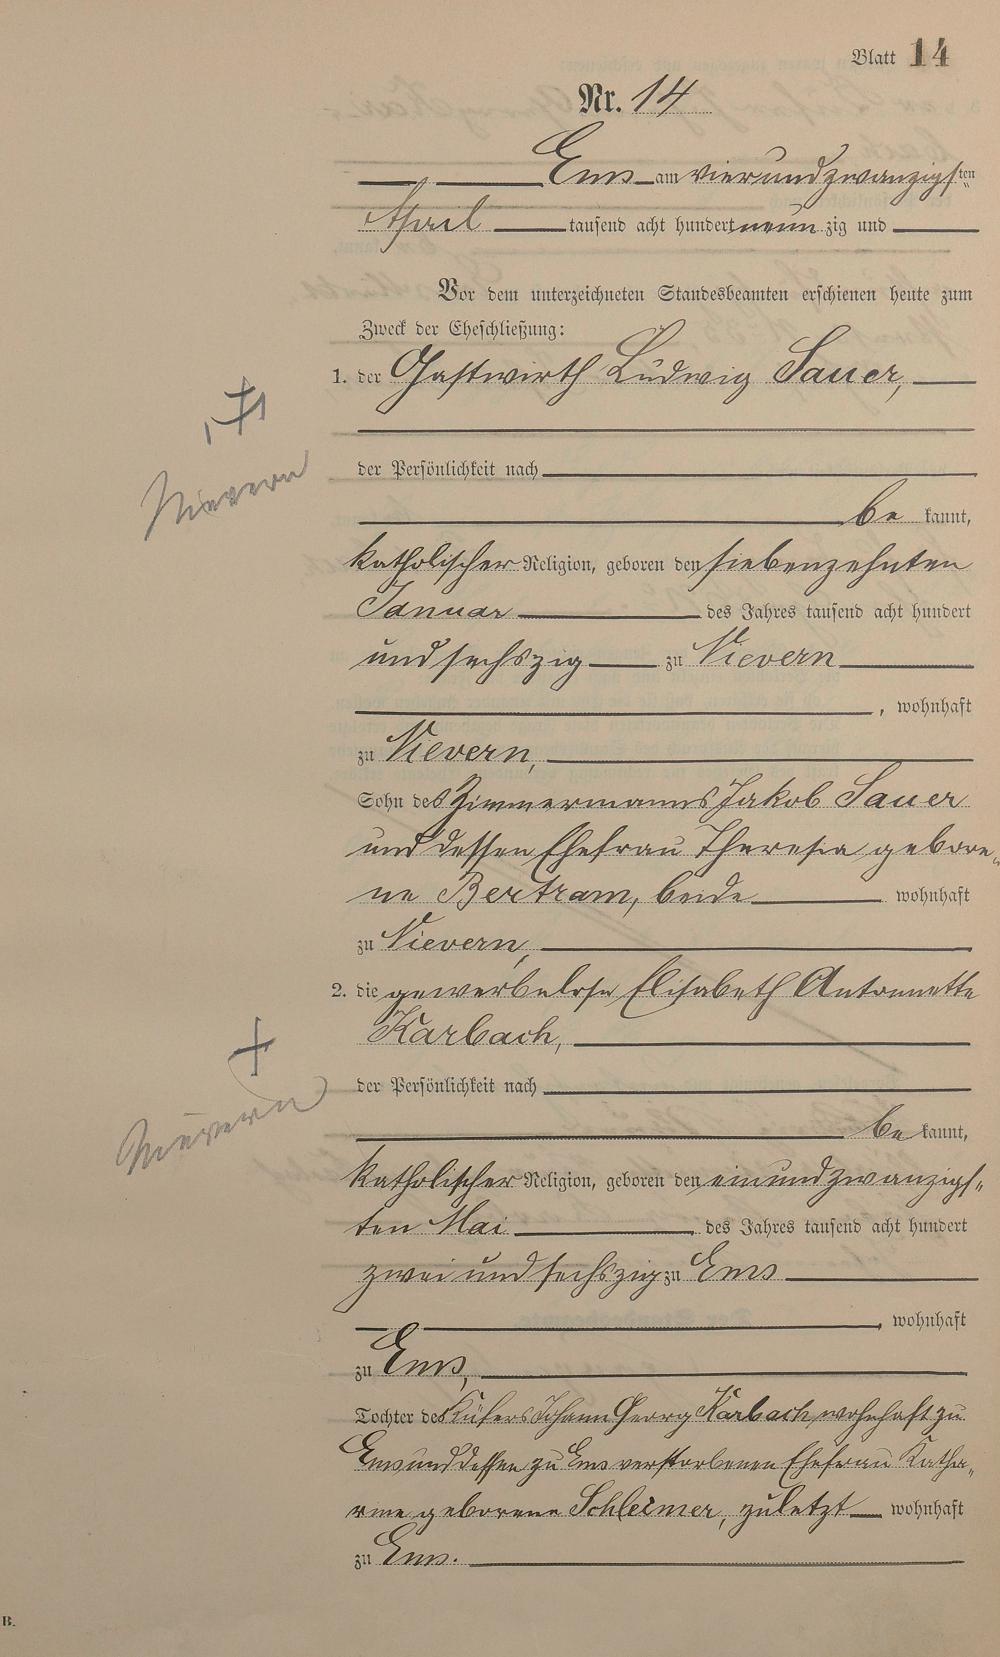 Blatt 14
Nr. 14
Ems am vierundzwanzigsten
April tausend acht hundert neunzig und
Vor dem unterzeichneten Standesbeamten erschienen heute zum
Zweck der Eheschließung:
1. der Gastwirth Ludwig Sauer,
der Persönlichkeit nach
be kannt,
Nievern
katholischer Religion, geboren den siebenzehnten
Januar des Jahres tausend acht hundert
und sechszig zu Nievern
, wohnhaft
zu Nievern,
Sohn des Zimmermanns Jakob Sauer
und dessen Ehefrau Theresia gebore„
ne Bertram, beide wohnhaft
zu Nievern,
2. die gewerbelose Elisabeth Antonnette
Karbach,
der Persönlichkeit nach
Nievern
be kannt,
katholischer Religion, geboren den einundzwanzigs„
ten Mai des Jahres tausend acht hundert
zwei und sechszig zu Ems
, wohnhaft
zu Ems,
Tochter des Küfers Johann Georg Karbach wohnhaft zu
Ems und dessen zu Ems verstorbenen Ehefrau Katha„
rine geborene Schleimer, zuletzt wohnhaft
zu Ems.
B.